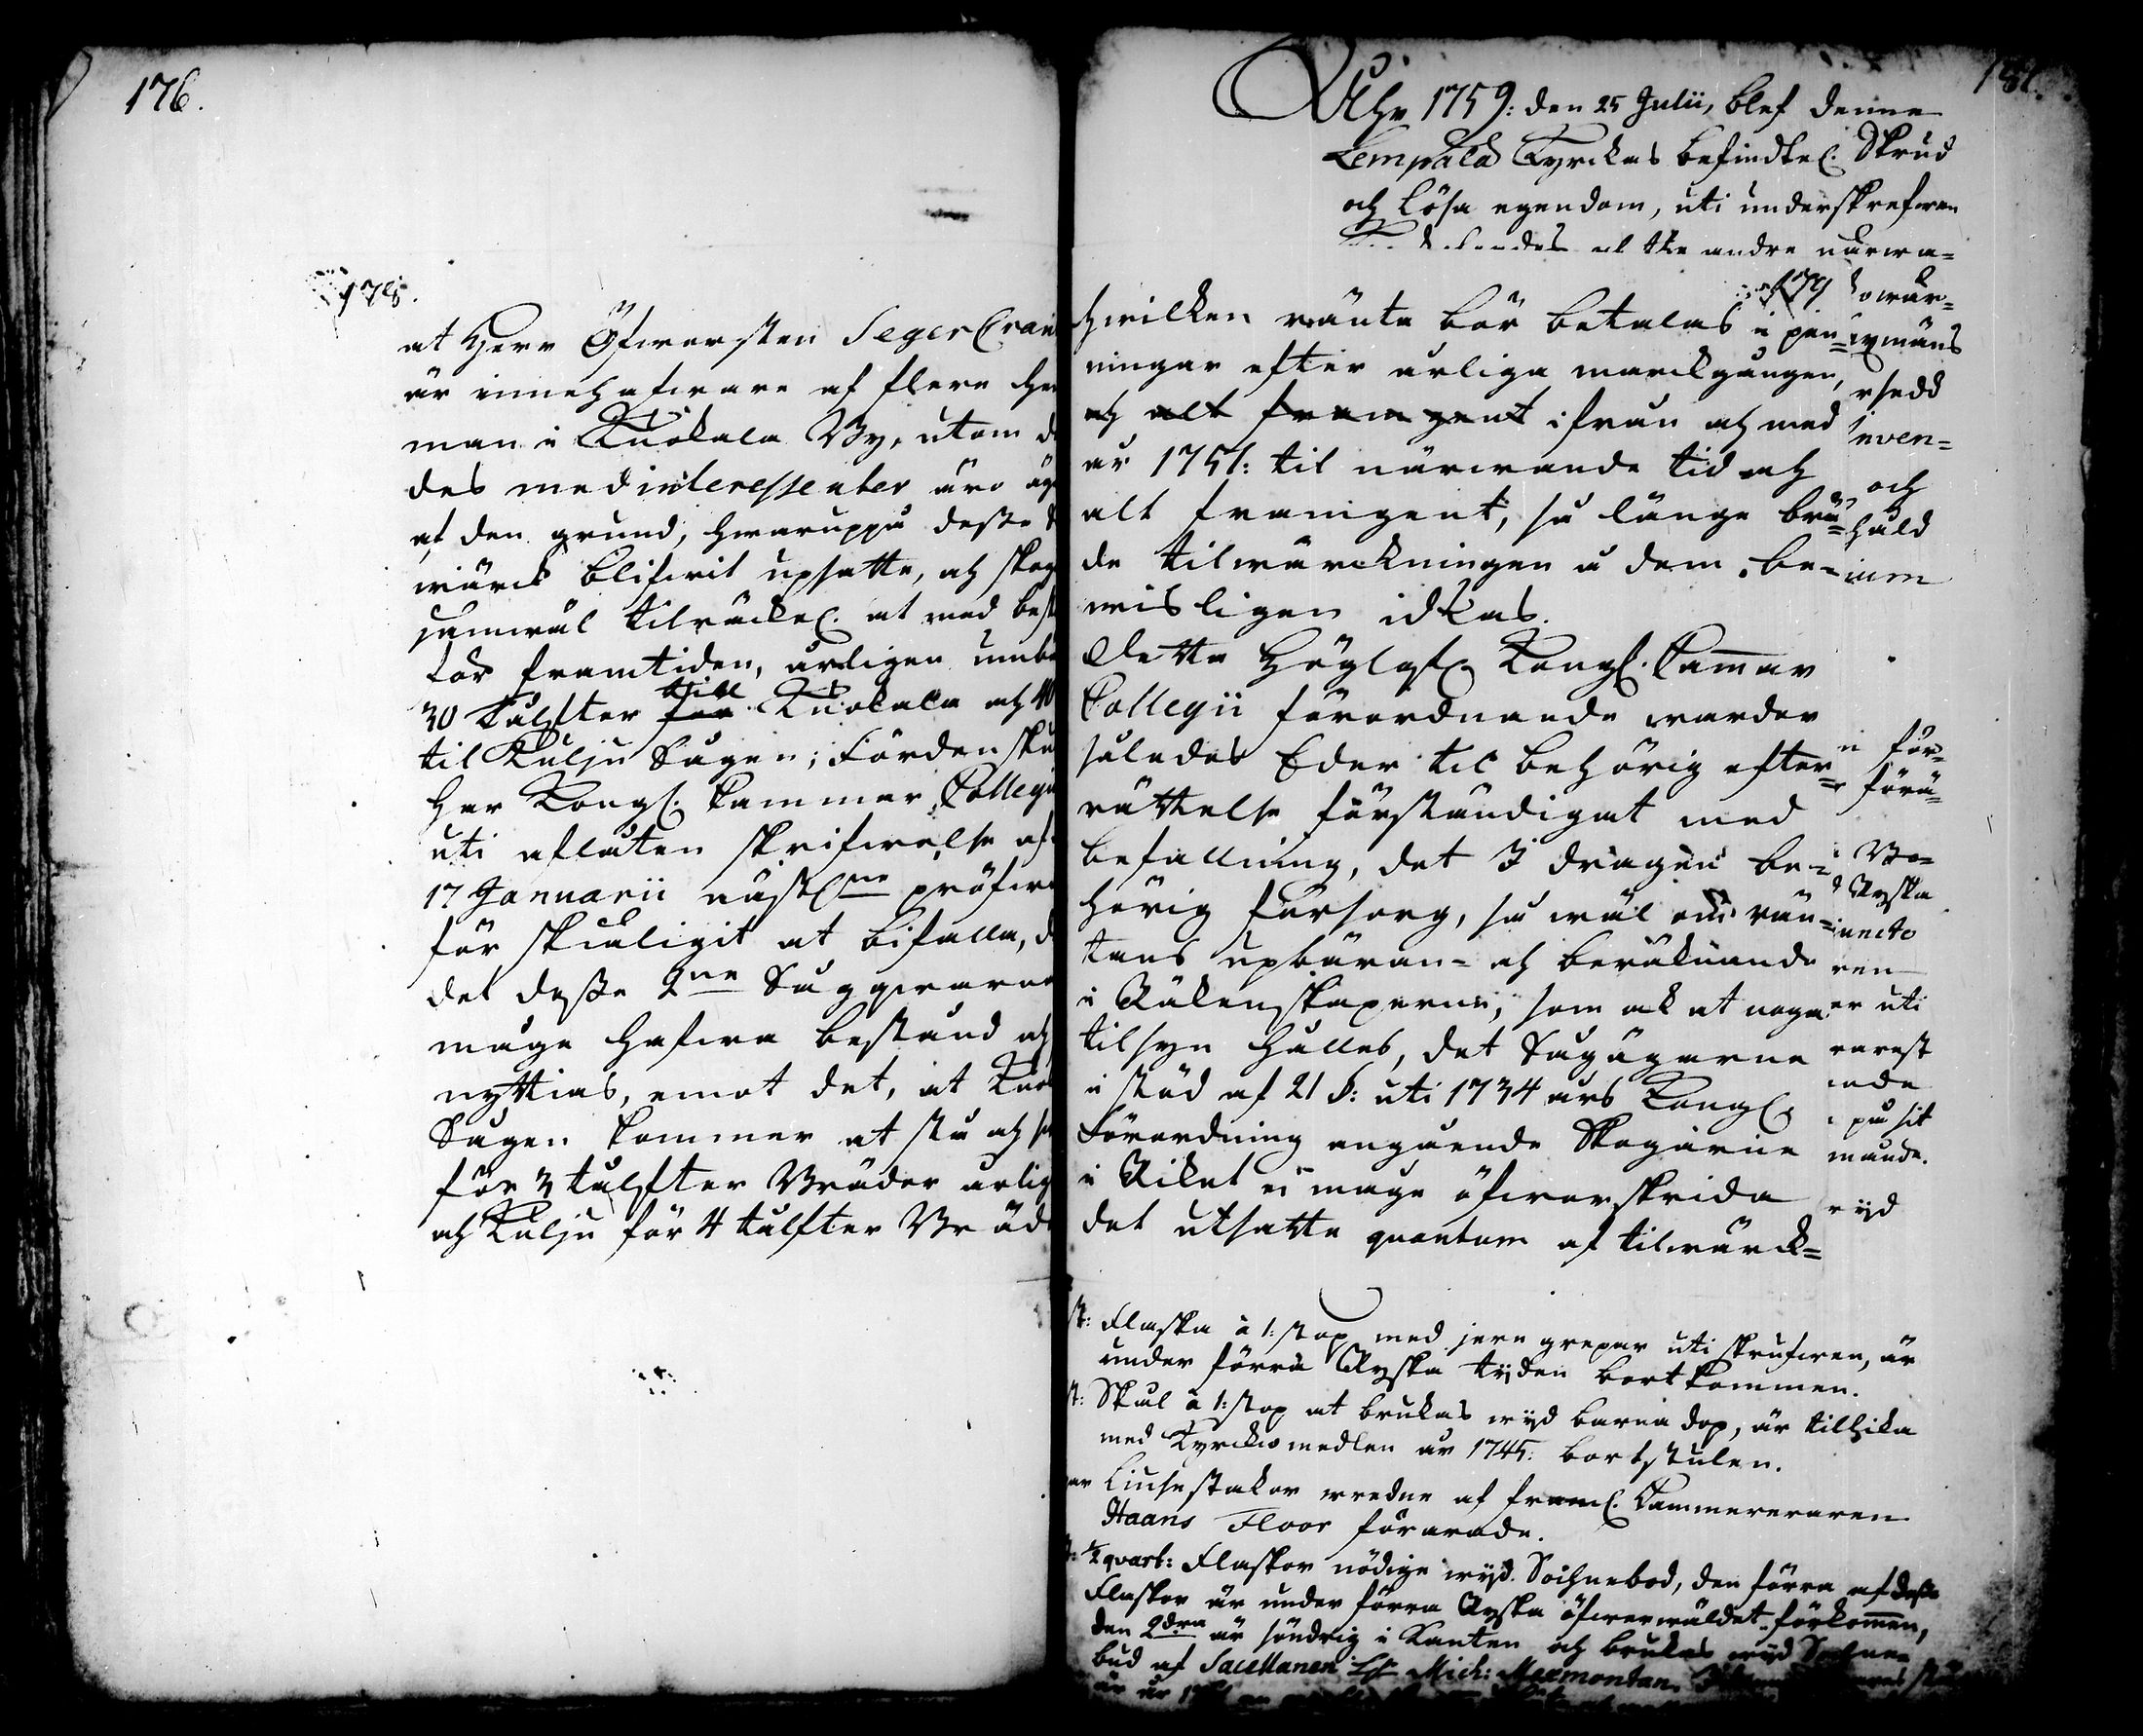 176.
178.
at Herr Öfwersten Seger Cran
är innehafware af flere Hem
man i Kuokala By, utom de
des med interessenter äro äga
af den grund, hwaruppå desse
wärck blifwit upsatte, och skog
jämwäl tilräckel. at med bestå
för framtiden, årligen umbä
30 tålfter för till Kuokala och 40
til Kulju Sågen; Fördenskul
har Kongl. Kammar Collegiu
uti aflåten skrifwelse af
17 Januarii näst⌠ne pröfwa
för skiäligit at bifalla, d
det desse 2ne Sågqwarna
måge hafwa bestånd och
nyttias, emot det, at Kuok
Sågen kommer at stå och s
för 3 tålfter Bräder årlig
och Kulju för 4 tålfter Bräd
181.
Åhr 1759: den 25 Julii, blef denne
Lempälä Kyrckas befindtel. Skrud
och Lösa egendom, uti underskrefwen
andre närwa=
179
hwilken ränta bör betalas i pen=
ningar efter årliga marckgången,
och alt framgent ifrån och med
år 1751: til närwarande tid och
alt framgent, så länge brä=
de tilwärckningen å dem be=
wisligen idkas.
Detta Höglofl. Kongl. Cammar
Collegii förordnande warder
således Eder til behörig efter=
rättelse förständigat med
befallning, det I dragen be=
hörig försorg, så wäl om rän=
tans upbäran= och beräknande
i Räkenskaperne, som ock at noga
tilsyn hålles, det Sågägarne
i stöd af 21 §: uti 1734 års Kongl.
Förordning angående Skogarne
i Riket ei måge öfwerskrida
det utsatte quantum af tilwärck=
owär=
exmäns
rsedd
inven=
och
håld
ium
för=
förä=
Bo=
Ryska
uncto
ren
er uti
erest
ende
på sit
mande.
ryd
st: Flaska à 1: stop med jern grepar uti skrufwen, är
under förra Ryska tyden bortkommen.
st: Skål à 1: stop at brukas wyd barna dop, är tillika
med Kyrckiomedlen år 1745: bortstulen.
par Liusestakar wredne af framl. Kammereraren
Haans Floor förärade.
st: ½ qvart: Flaskor nödige wyd Sochnebod, den förra af desse
Flaskor är under förra Ryska öfwerwäldet förkommen,
den 2dra är söndrig i Kanten och brukas wyd Sochne=
bud af Sacellanen Hr Mich: Mexmontan.